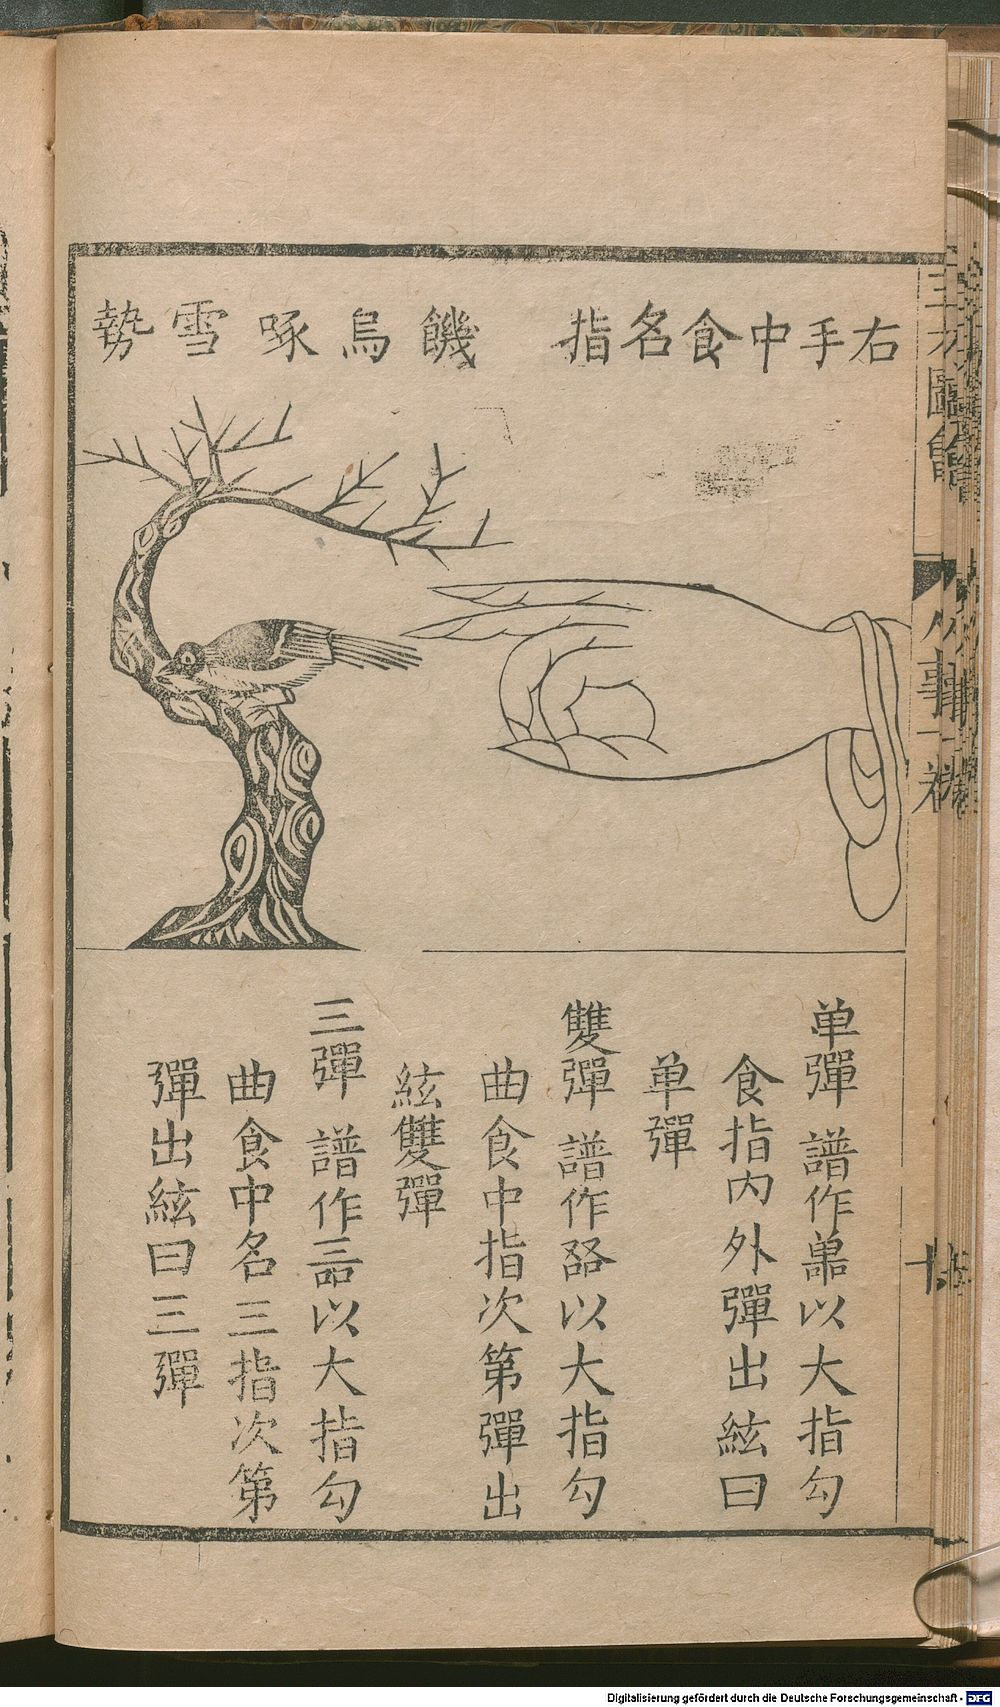 右手中食名指
饑烏啄雪勢
单彈 譜作㽃以大指勾
食指内外彈出絃曰
单彈
雙彈 譜作㗊以大指勾
曲食中指次第彈出
絃雙彈
三彈 譜作 以大指勾
曲食中名三指次第
彈出絃曰三彈
三才圖會
人事一卷
十
Digitalisierung gefördert durch die Deutsche Forschungsgemeinschaft - DFG